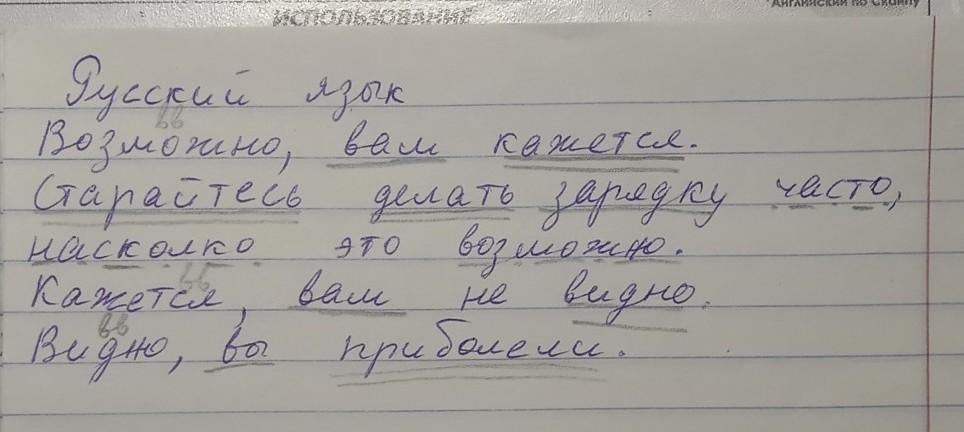 Английский по Скайпу
ИСПОЛЬЗОВАНИЕ
Русский язык
вв
Возможно, вам кажется.
Старайтесь делать зарядку часто,
насколко это возможно.
вв
Кажется, вам не видно.
вв
Видно, вы приболели.